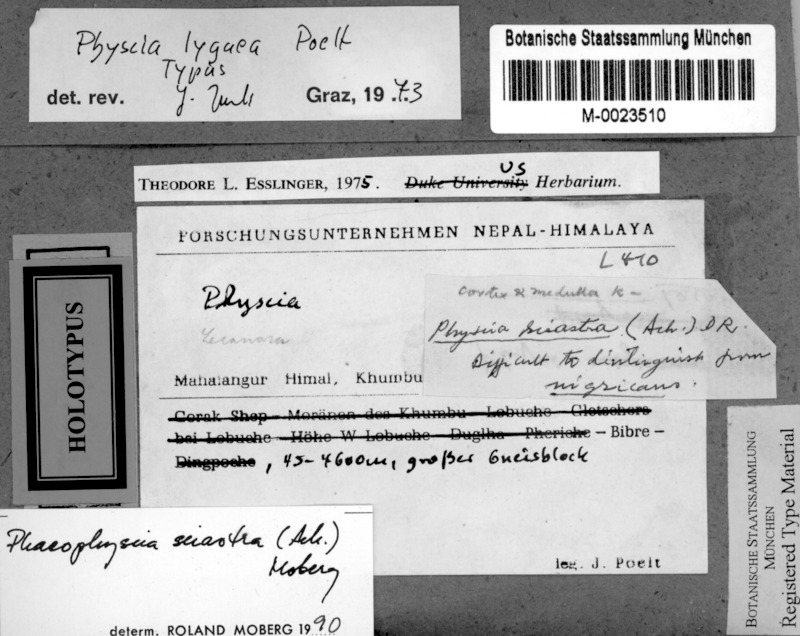 Physcia lygaea Poelt
Typus
det. rev. Graz, 19.73
Botanische Staatssammlung München
M-0023510
THEODORE L. ESSLINGER, 1975. Duke University US Herbarium.
FORSCHUNGSUNTERNEHMEN NEPAL-HIMALAYA
L 410
Physcia
Lecanora
Cortex & medulla K-
Physcia sciastra (Ach.) DR.
Difficult to distinguish from
nigricans.
Mahalangur Himal, Khumbu
Gorak Shep - Moränen des Khumbu - Lobuche - Gletschers
bei Lobuche - Höhe W Lobuche - Duglha - Pheriche - Bibre -
Dingpoche, 45-4600m, großer Gneisblock
leg. J. Poelt
HOLOTYPUS
Phaeophyscia sciastra (Ach.)
Moberg
determ. ROLAND MOBERG 1990
BOTANISCHE STAATSSAMMLUNG
MÜNCHEN
Registered Type Material